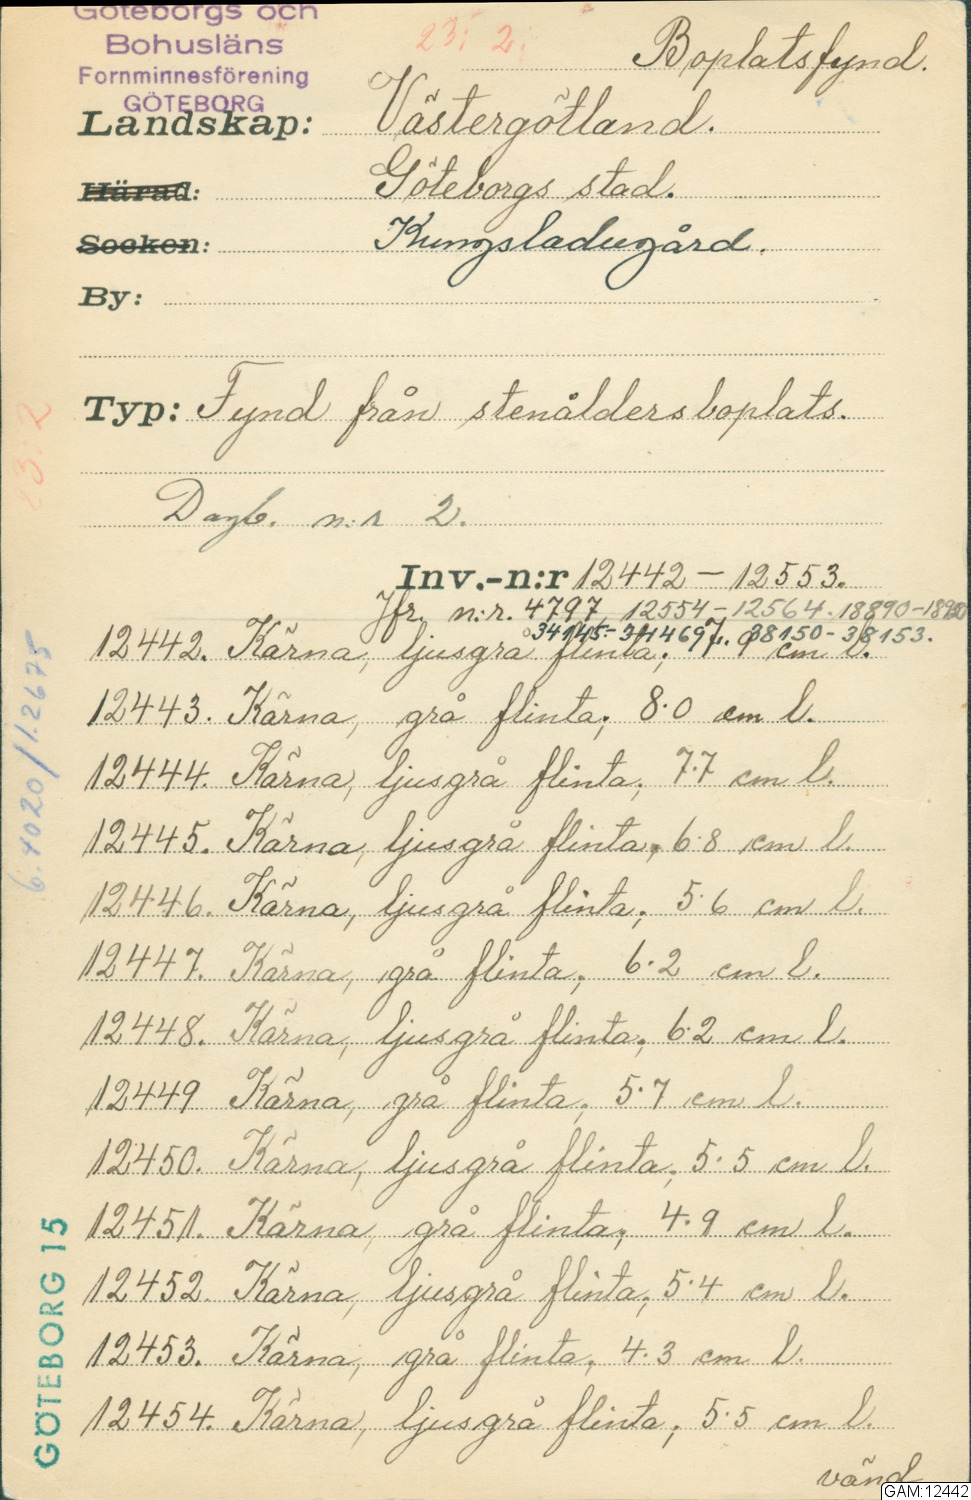 Göteborgs och
Bohusläns
Fornminnesförening
GÖTEBORG
23: 2:
Boplatsfynd.
Landskap: Västergötland.
Härad: Göteborgs stad.
Socken: Kungsladugård.
By:
Typ: Fynd från stenåldersboplats.
Dagb. n:r 2.
Inv.-n:r 12442 – 12553.
Jfr. n:r. 4797, 12554-12564. 18890-
38150-38153.
12442. Kärna, ljusgrå flinta; 7.9 cm l.
12443. Kärna, grå flinta; 8.0 cm l.
12444. Kärna, ljusgrå flinta; 7.7 cm l.
12445. Kärna, ljusgrå flinta; 6.8 cm l.
12446. Kärna, ljusgrå flinta; 5.6 cm l.
12447. Kärna, grå flinta; 6.2 cm l.
12448. Kärna, ljusgrå flinta; 6.2 cm l.
12449 Kärna, grå flinta; 5.7 cm l.
12450. Kärna, ljusgrå flinta; 5.5 cm l.
12451. Kärna, grå flinta; 4.9 cm l.
12452. Kärna, ljusgrå flinta; 5.4 cm l.
12453. Kärna, grå flinta; 4.3 cm l.
12454. Kärna, ljusgrå flinta; 5.5 cm l.
vänd
23: 2
6.4020/1.2675
GÖTEBORG 15
GAM:12442